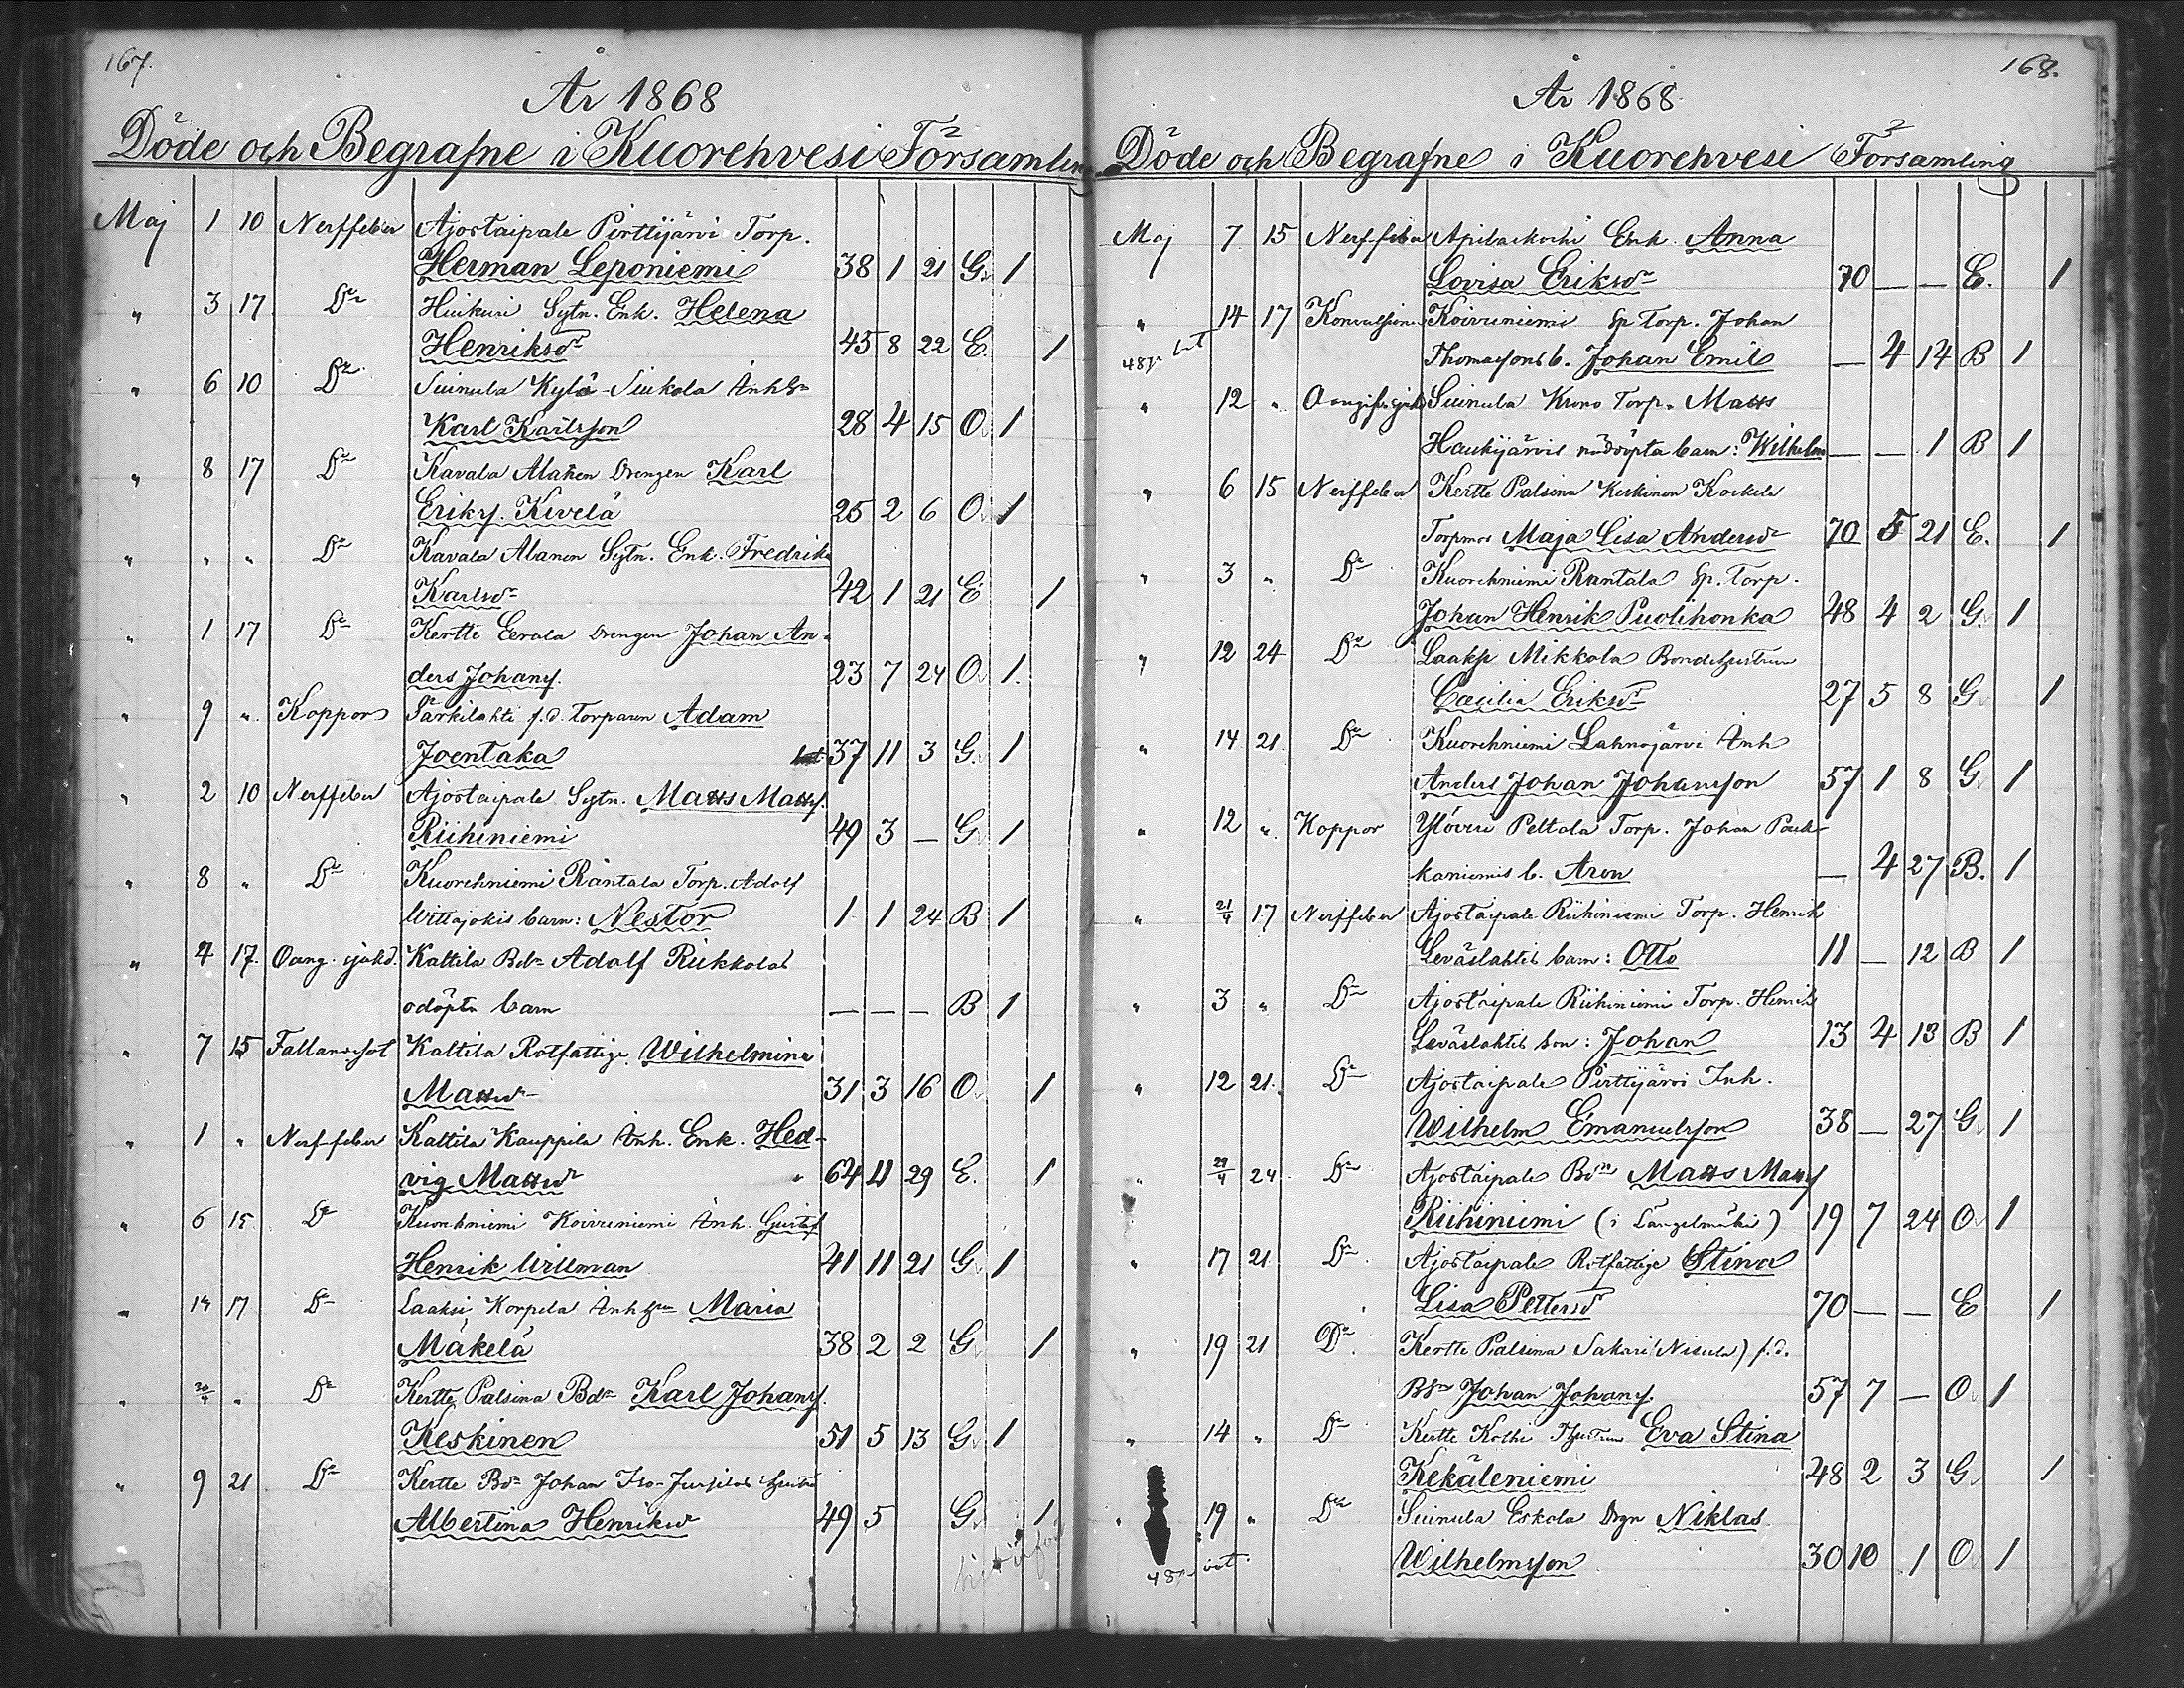 167.
År 1868
Döde och Begrafne i Kuorehvesi Församling
Maj 1 10 Nerffeber Ajostaipale Pirttijärvi Torp.
Herman Leponiemi 38 1 21 G. 1
" 3 17 Do Sytn. Enk. Helena
Henriksdr 45 8 22 E. 1
" 6 10 Do Suinula Kylä-Siukola Inhs
Karl Karlsson 28 4 15 O. 1
" 8 17 Do Kavala Alanen Drengen Karl
Eriks. Kivelä 25 2 6 O. 1
" " " Do Kavala Alanen Sytn. Enk. Fredrika
Karlsdr 42 1 21 E 1
" 1 17 Do Kertte Eerola Drengen Johan An-
ders Johans. 23 7 24 O. 1.
" 9 " Koppor Särkilahti f.d. Torparen Adam
Joentaka 37 11 3 G. 1
" 2 10 Nerffeber Ajostaipale Sytn. Matts Matts.
Riihiniemi 49 3 — G. 1
" 8 " Do Kuorehniemi Rantala Torp. Adolf
Wittajokis barn: Nestor 1 1 24 B 1
" 4 17. Oang. sjukd. Kattila Bdn Adolf Riikkolas
odöpta barn — — — B 1
" 7 15 Fallandesot Kattila Rotfattige Wilhelmina
Mattsdr 31 3 16 O. 1
" 1 " Nerffeber Kattila Kauppila Inh. Enk. Hed-
vig Mattsdr 64 11 29 E. 1
" 6 15 Do Kuorehniemi Koivuniemi Inh. Gustaf
Henrik Willman 41 11 21 G. 1
" 14 17 Do Laaksi Korpela Inh Maria
Mäkelä 38 2 2 G. 1
" 20/4 " Do Kertte Palsina Bdn Karl Johans.
Keskinen 51 5 13 G. 1
" 9 21 Do Kertte Bdn Johan Iso-Jussilas hustru
Albertina Henriksdr 49 5 G. 1
168.
År 1868
Döde och Begrafne i Kuorehvesi Församling
Maj 7 15 Nerffeber Enk. Anna
Lovisa Eriksdr 70 — — E. 1
" 14 17 Konvulsioner Koivuniemi Sp Torp. Johan
Thomassons b. Johan Emil — 4 14 B 1
" 12 " Oangifv. sjukd. Suinula Krono Torp. Matts
Haukijärvis nödöpta barn: Wilhelm — — 1 B 1
" 6 15 Nerffeber Kertte Palsina Keskinen Koskela
Torpmor Maja Lisa Andersdr 70 5 21 E. 1
" 3 " Do Kuorehniemi Rantala Sp. Torp.
Johan Henrik Puolihonka 48 4 2 G. 1
" 12 24 Do Laaksi Mikkola Bondehustrun
Cæcilia Eriksdr 27 5 8 G. 1
" 14 21. Do Kuorehniemi Lahnajärvi Inh
Anders Johan Johansson 57 1 8 G. 1
" 12 " Koppor Ylövesi Peltola Torp. Johan Pouk-
kaniemis b. Aron — 4 27 B. 1
" 21/4 17 Nerffeber Ajostaipale Riihiniemi Torp. Henrik
Leväslahtis barn: Otto 11 — 12 B 1
" 3 " Do Ajostaipale Riihiniemi Torp. Henrik
Leväslahtis son: Johan 13 4 13 B 1
" 12 21. Do Ajostaipale Pirttijärvi Inh.
Wilhelm Emanuelsson 38 — 27 G. 1
" 29/4 24 Do Ajostaipale Bdn Matts Matts
Riihiniemi (i Längelmäki) 19 7 24 O. 1
" 17 21 Do Ajostaipale Rotfattige Stina
Lisa Pettersdr 70 — — E 1
" 19 21 Do. Kertte Palsina Sakari (Nisula) f.d.
Bdn Johan Johans. 57 7 — O. 1
" 14 " Do Kertte Hustrun Eva Stina
Kekäleniemi 48 2 3 G. 1
" 19 " Do Suinula Eskola Drgn Niklas
Wilhelmsson 30 10 1 O. 1